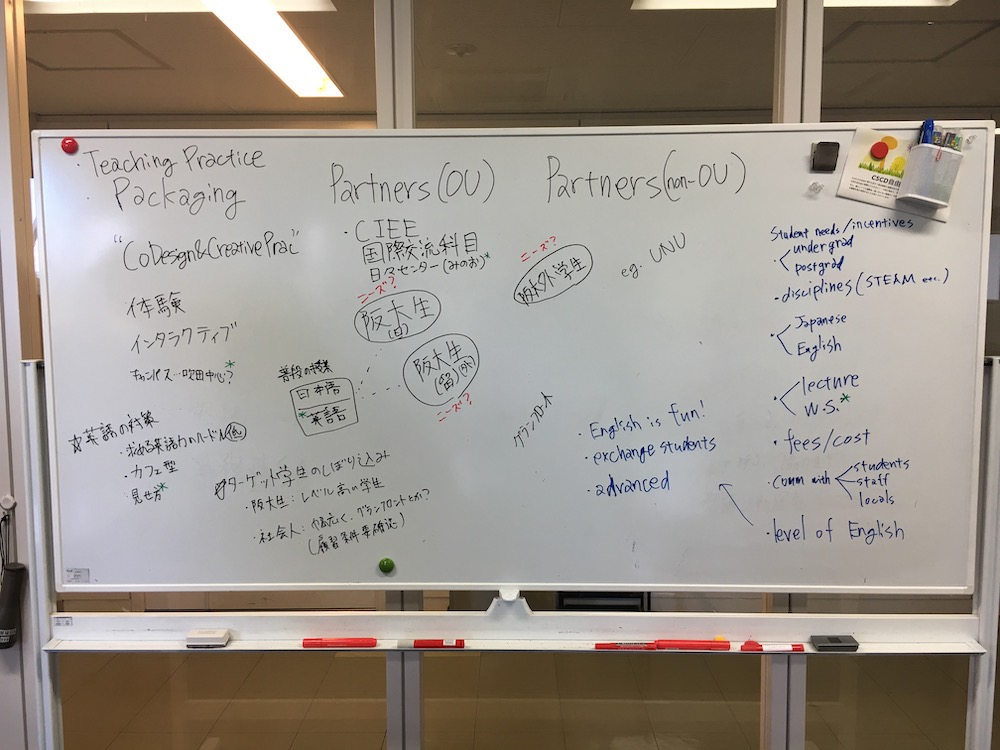 ・Teaching Practice
Packaging
"CoDesign&CreativePrac"
体験
インタラクティブ
キャンパス…吹田中心?*
☆英語の対策
・求める英語力のハードル低
・カフェ型
・見せ方*
Partners(OU)
・CIEE
国際交流科目
日々センター(みのお)*
ニーズ?
阪大生
阪大生
(留)
ニーズ?
普段の授業
日本語
*英語
ターゲット学生のしぼり込み
・阪大生:レベル高い学生
・社会人:幅広く、グランフロントとか?
(履習条件要確認)
Partners(non-OU)
ニーズ?
阪大外学生
eg. UNU
グランフロント
・English is fun!
・exchange students
・advanced
Student needs/incentives
・undergrad
postgrad
・disciplines(STEAM etc.)
・Japanese
English
・lecture
W.S.*
・fees/cost
・comm with
students
staff
locals
・level of English
CSCD自由